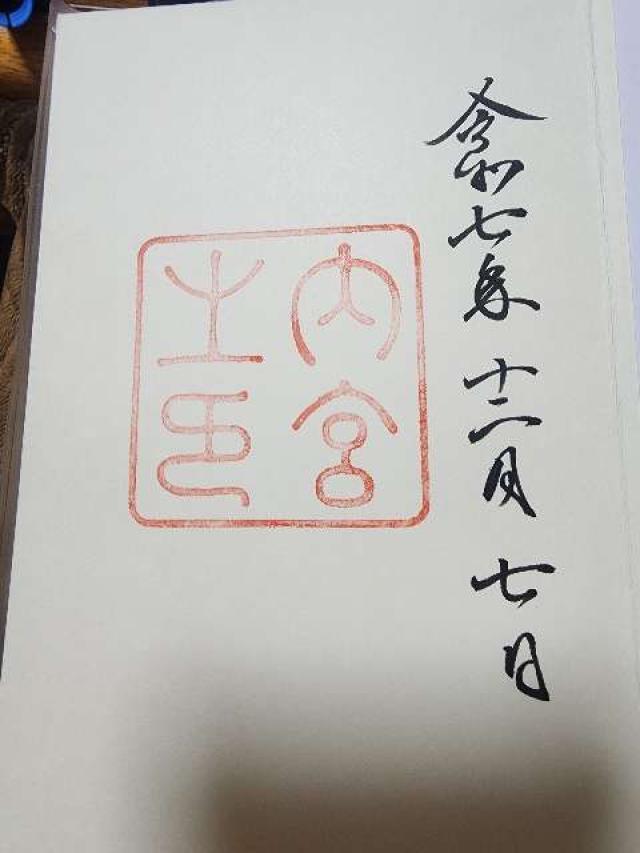 令和七年 十二月 七日
内宮
之印